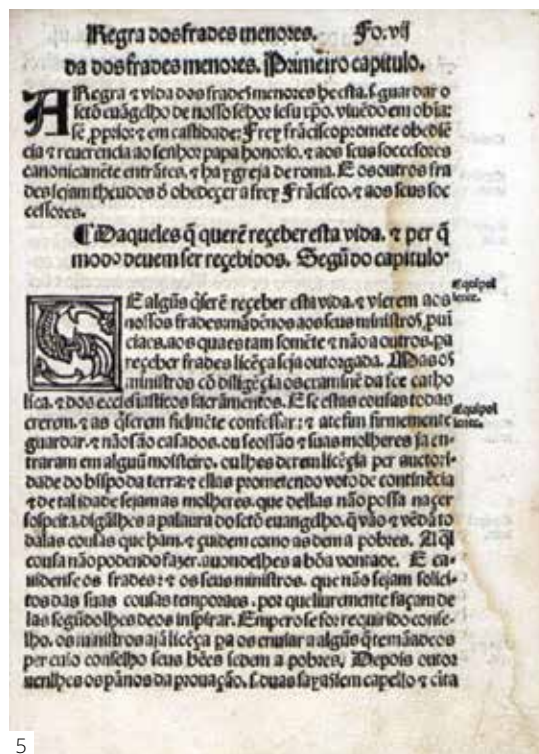 Regra dos frades menores. Fo. vij
da dos frades menores. Primeiro capitulo.
A Regra ⁊ vida dos frades menores he esta. s. guardar o
sctõ euãgelho de nosso sẽhor iesu xp̃o. viuẽdo em obia:
sẽ .pprio: ⁊ em castidade: Frey frãcisco promete obediẽ
cia ⁊ reuerencia ao senhor papa honorio. ⁊ aos seus soccesores
canonicamẽte entrãtes. ⁊ ha ygreja de roma. E os outros fra
des sejam theudos d̃ obedeçer a frey Frãcisco. ⁊ aos seus soc
cessores.
¶ Daqueles q̃ querẽ reçeber esta vida. ⁊ per q̃
modo deuem ser reçebidos. Segũdo capitulo.
SE algũs q̃serẽ reçeber esta vida. ⁊ vierem aos
nossos frades mãdẽnos aos seus ministros, pui
ciaes. aos quaes tam somẽte ⁊ não a outros. pa
reçeber frades licẽça seja outorgada. Mas os
ministros cõ diligẽcia os examinẽ da fee catho
lica. ⁊ dos ecclesiasticos sacrãmentos. E se estas cousas todas
crerem. ⁊ as q̃serem fielmẽte confessar: ⁊ ate fim firmemente
guardar. ⁊ não são casados. ou se o são ⁊ suas molheres ja en-
traram em algũu moisteiro. ou lhes derem licẽçia per auctori-
dade do bispo da terra: ⁊ ellas prometendo voto de continẽcia
⁊ de tal idade sejam as molheres. que dellas não possa naçer
sospeita. digãlhes a palaura do sctõ euangelho. q̃ vão ⁊ vẽdã to
dalas cousas que ham. ⁊ cuidem como as dem a pobres. A q̃l
cousa não podendo fazer. auondelhes a bõa vontade. E ca-
uidense os frades: ⁊ os seus ministros. que não sejam solici-
tos das suas cousas temporaes. por que liuremente façam de
las segũdo lhes deos inspirar. Empero se for requirido conse-
lho. os ministros ajã licẽça pa os enuiar a algũs q̃ temã a deos
per cujo conselho seus bẽes se dem a pobres. Depois outor
uenlhes os pãnos da prouação. s. duas sayas sem capello ⁊ cita
Equipol
lente.
Equipol
lente.
5